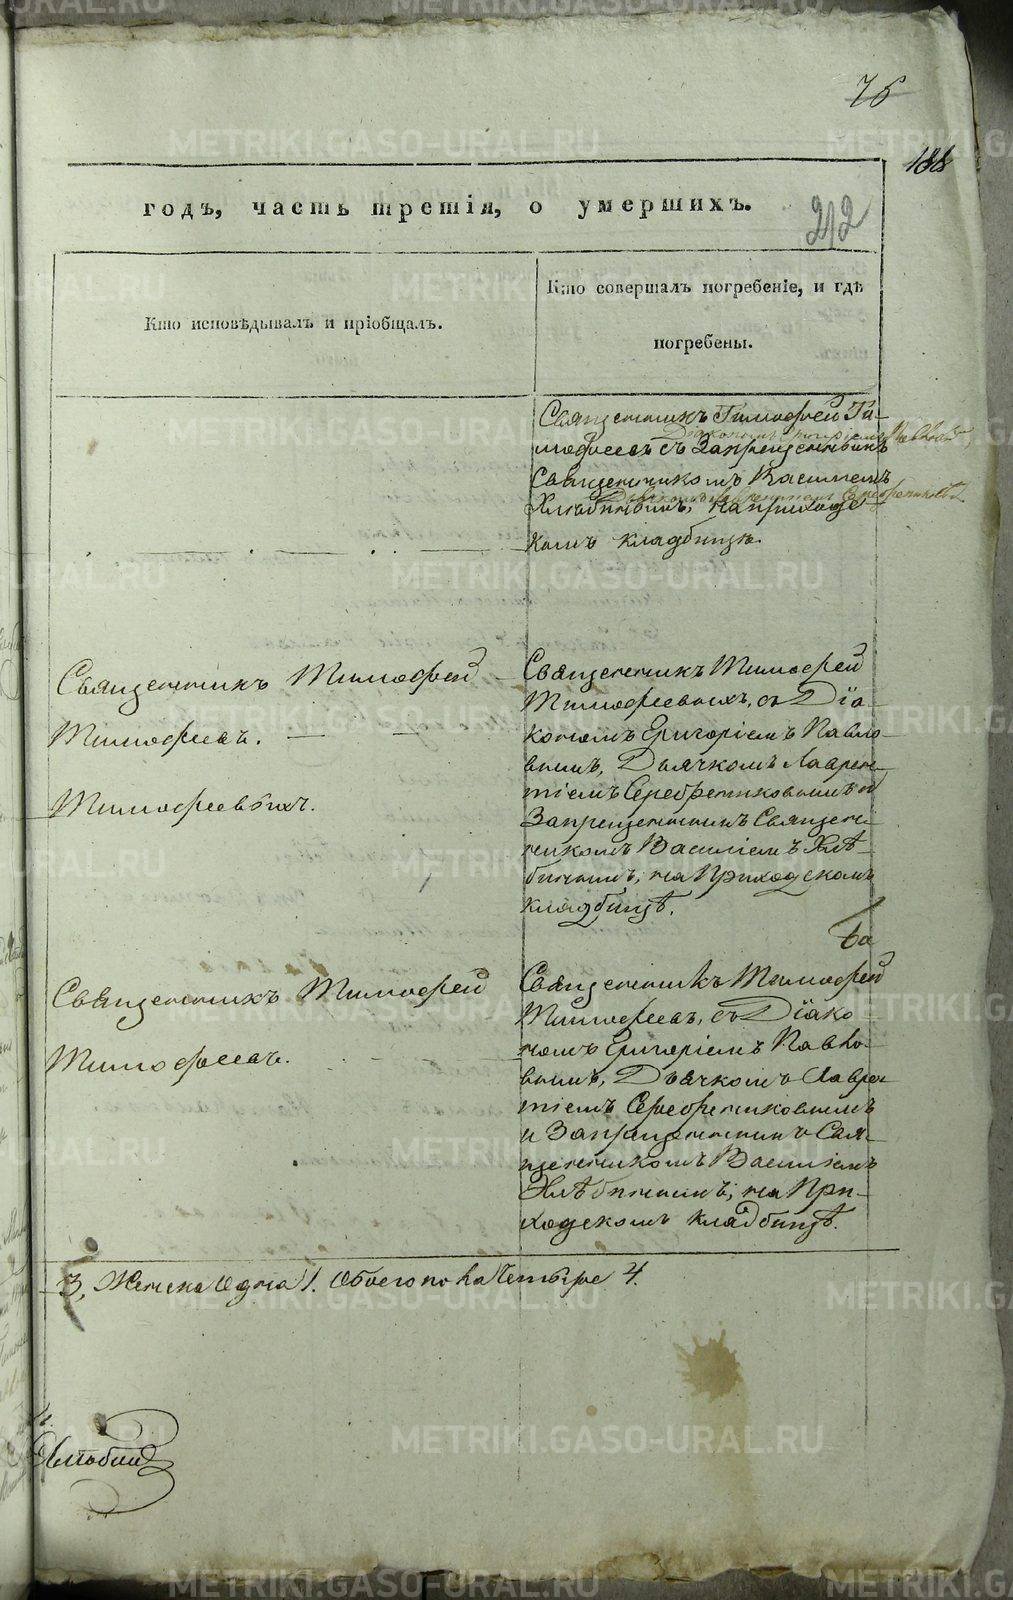 76
188
годъ, часть третія, о умершихъ.
212
Кто исповѣдывалъ и пріобщалъ.
Кто совершалъ погребеніе, и гдѣ
погребены.
Священникъ Тимофей Ти-
мофеевъ съ Запрещеннымъ
Діакономъ Григоріемъ Павловымъ,
Священникомъ Василіемъ
Дьячкомъ Лаврентіемъ Серебрениковымъ
Хлѣбинымъ, на приходс
комъ кладбищѣ.
Священникъ Тимофей
Тимофеевъ.
Тимофеевыхъ.
Священникъ Тимофей
Тимофеевыхъ, съ Діа-
кономъ Григоріемъ Павло-
вымъ, Дьячкомъ Лаврен-
тіемъ Серебрениковымъ и
Запрещеннымъ Священ-
никомъ Василіемъ Хлѣ-
бинымъ, на Приходскомъ
кладбищѣ.
Священникъ Тимофей
Тимофеевъ.
Священникъ Тимофей
Тимофеевъ, съ Діако-
номъ Григоріемъ Павло-
вымъ, Дьячкомъ Лаврен-
тіемъ Серебрениковымъ
и Запрещеннымъ Свя-
щенникомъ Василіемъ
Хлѣбинымъ, на При-
ходскомъ кладбищѣ.
3, Женска Одна 1. Обоего пола Четыре 4.
Хлѣбинъ
METRIKI.GASO-URAL.RU